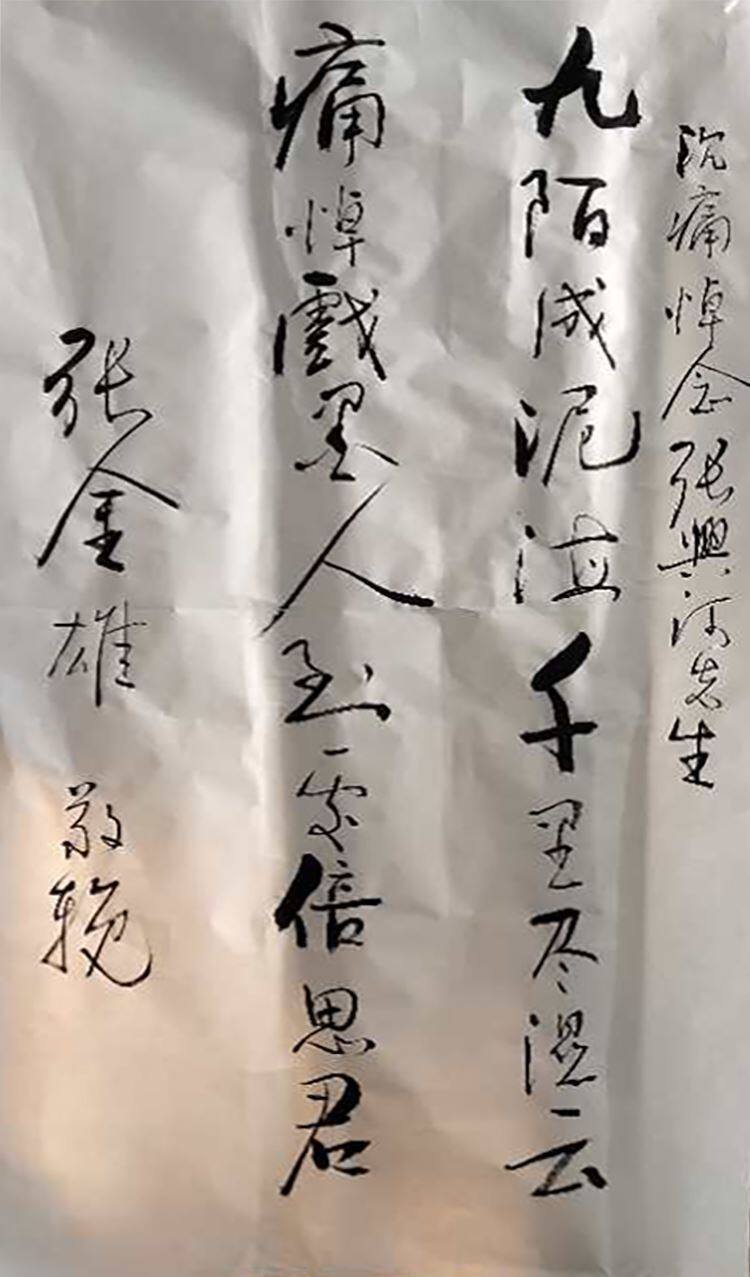 沉痛悼念张興河先生
九陌成泥泣千里尽湿云
痛悼戲墨人倍思君
张金雄 敬輓